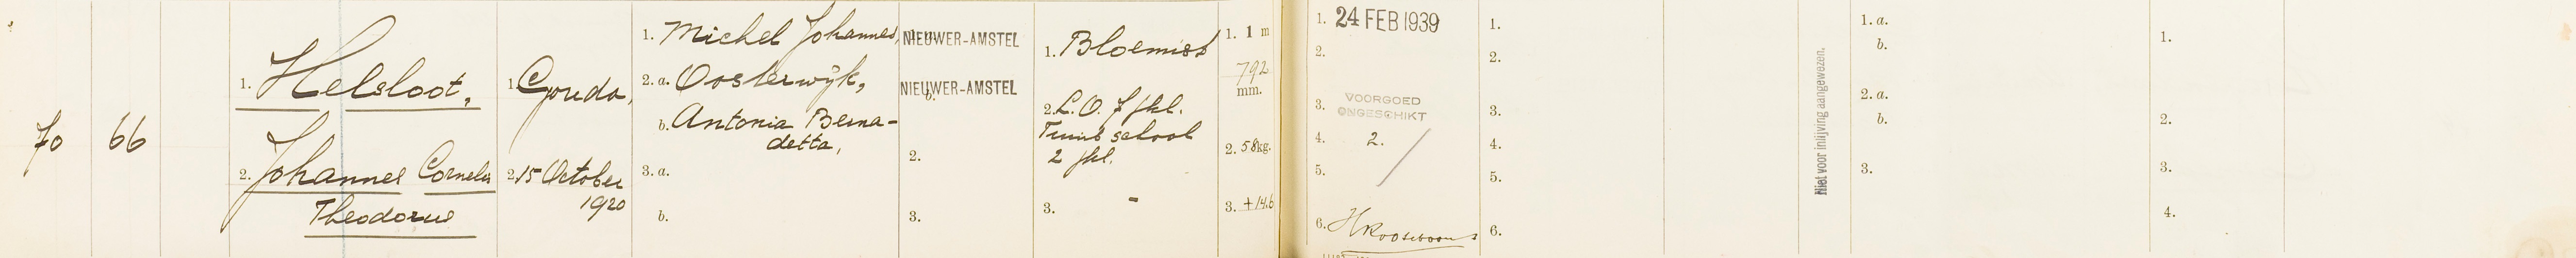 70
66
1. Helsloot,
2. Johannes Cornelis
Theodorus
1. Gouda,
2. 15 October
1920
1. Michel Johannes,
2. a. Oosterwijk,
b. Antonia Berna-
detta,
3. a.
b.
NIEUWER-AMSTEL
NIEUWER-AMSTEL
b.
2.
3.
1. Bloemist
2. L.O. 7 jkl.
Tuinb school
2 jkl.
3. -
1. 1 m
792
mm.
2. 58 kg.
3. +14.6
1. 24 FEB 1939
2.
3. VOORGOED
ONGESCHIKT
4. 2.
5.
6. H Rooseboom
1.
2.
3.
4.
5.
6.
Niet voor inlijving aangewezen.
1. a.
b.
2. a.
b.
3.
1.
2.
3.
4.